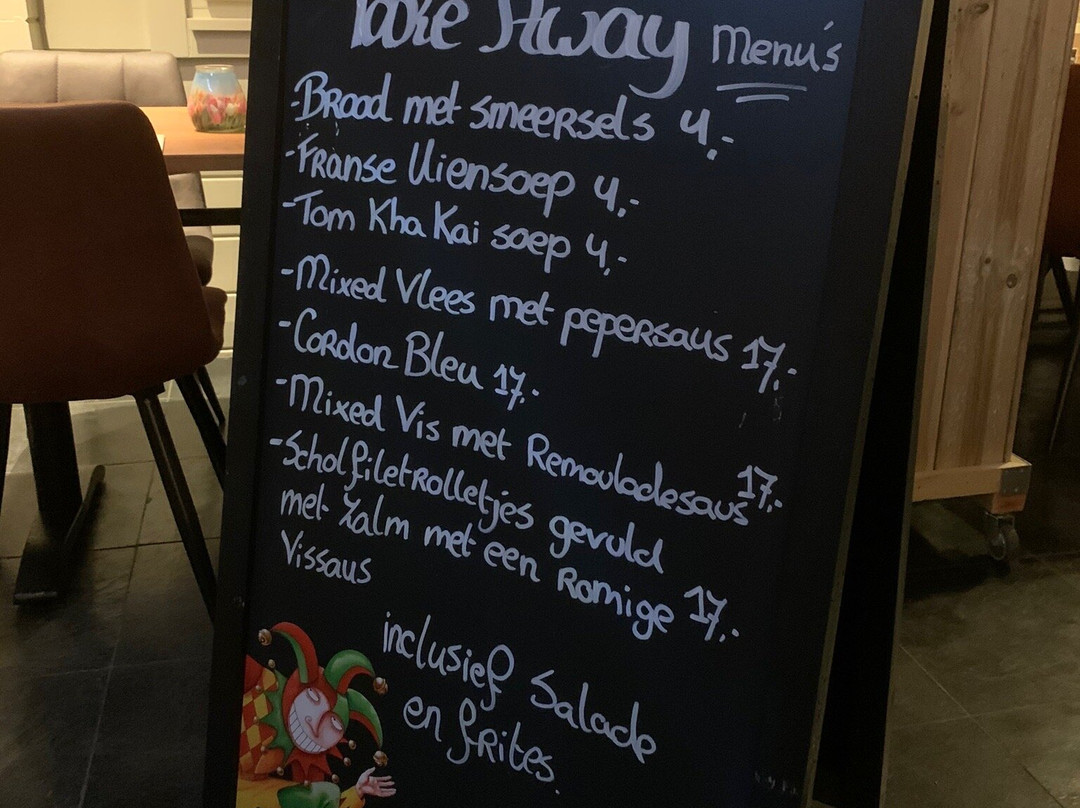 Take Away Menu's
-Brood met smeersels 4,-
-Franse Uiensoep 4,-
-Tom Kha Kai soep 4,-
-Mixed Vlees met pepersaus 17,-
-Cordon Bleu 17,-
-Mixed Vis met Remouladesaus 17,-
-Scholfiletrolletjes gevuld
met Zalm met een Romige 17,-
Vissaus
inclusief Salade
en frites.